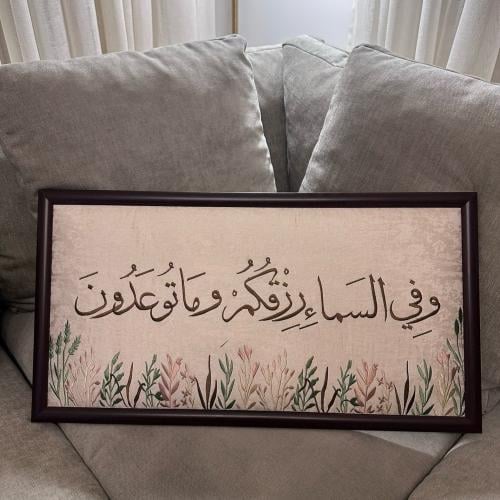 وَفِي السَماءِ رِزْقُكُمْ وَمَا تُوعَدُونَ